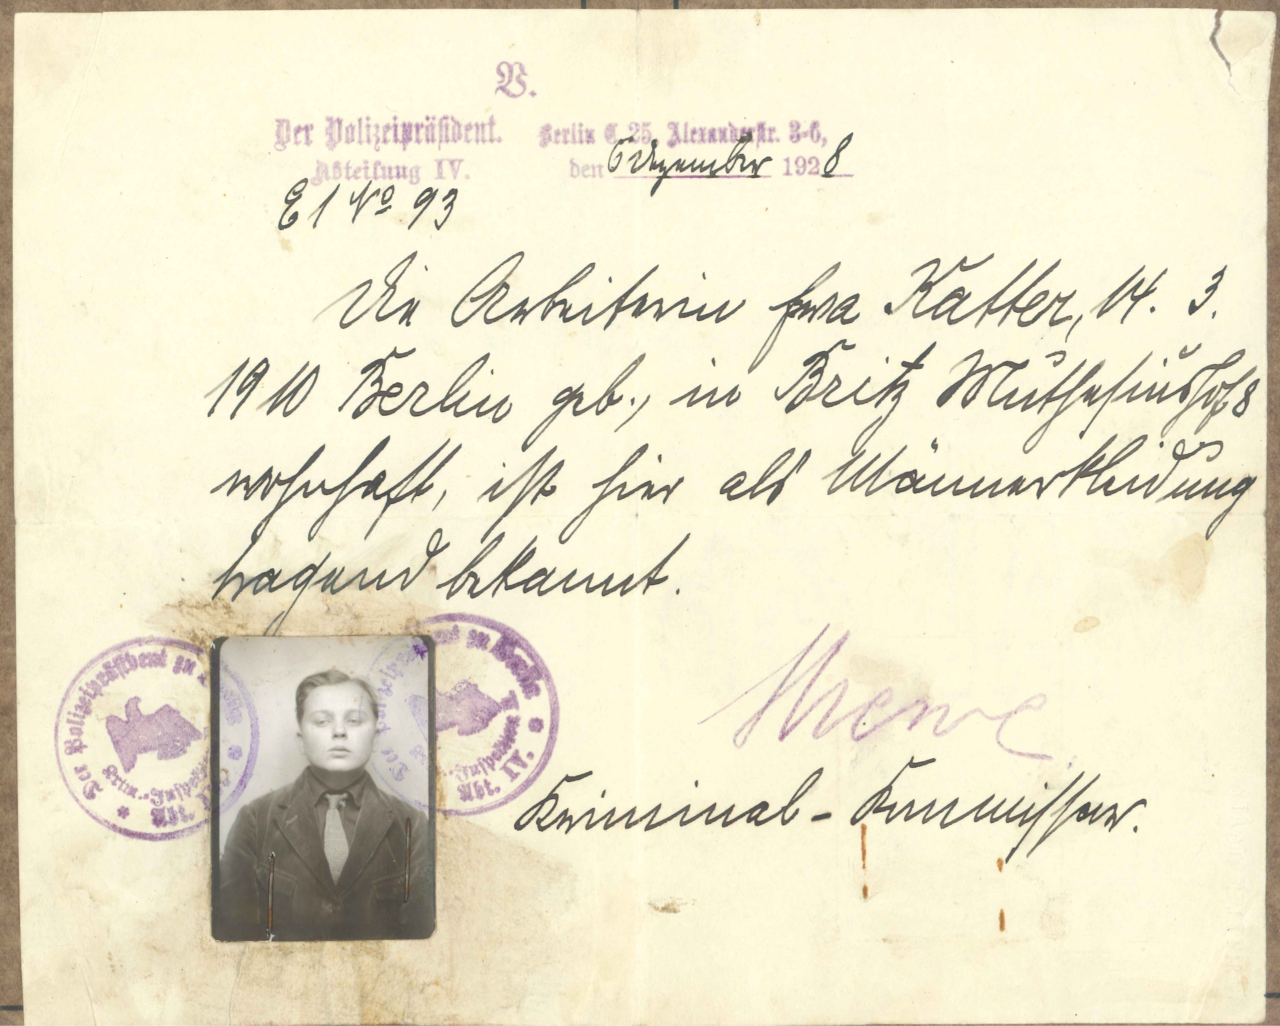 V.
Der Polizeipräsident. Berlin C. 25, Alexanderstr. 3-6,
Abteilung IV. den 6 Dezember 1928
E 1 No 93
Die Arbeiterin Eva Katter, 14. 3.
1910 Berlin geb., in Britz Muthesiushof 8
wohnhaft, ist hier als Männerkleidung
tragend bekannt.
Der Polizeipräsident zu Berlin
Krim.-Inspektion
Abt. IV.
Der Polizeipräsident zu Berlin
Krim.-Inspektion
Abt. IV.
Kriminal-Kommissar.